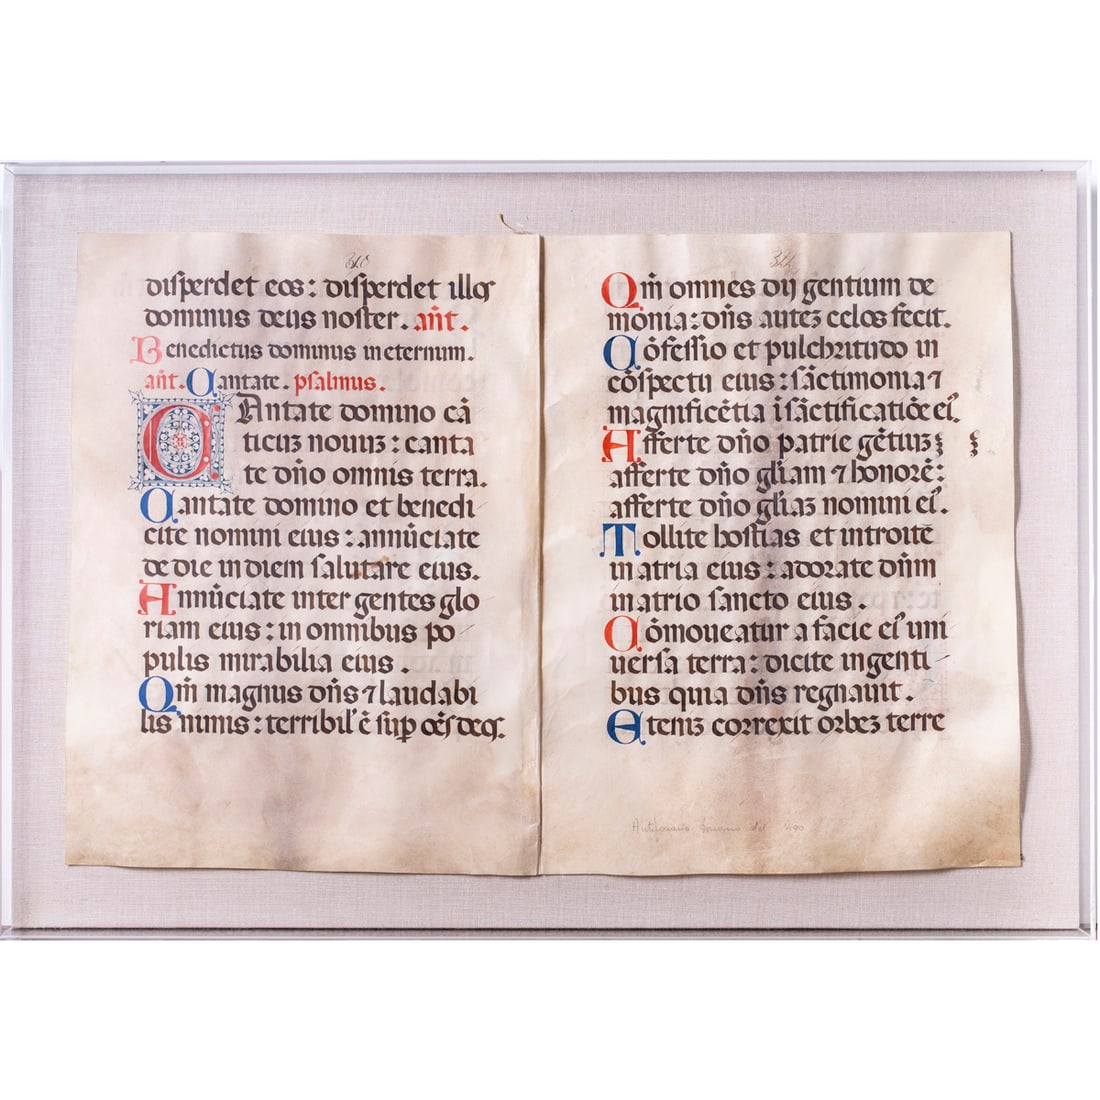 310
disperdet eos: disperdet illos
dominus deus noster. ant̄.
Benedictus dominus in eternum.
ant̄. Cantate. psalmus.
CAntate domino cā
ticuz nouuz: canta
te dn̄o omnis terra.
Cantate domino et benedi
cite nomini eius: annūciate
de die in diem salutare eius.
Annūciate inter gentes glo
riam eius: in omnibus po
pulis mirabilia eius.
Qm̄ magnus dn̄s ⁊ laudabi
lis nimis: terribil' ē suꝑ oēs deos.
Qm̄ omnes dij gentium de
monia: dn̄s autez celos fecit.
Cōfessio et pulchritudo in
cōspectu eius: sāctimonia ⁊
magnificētia ī sāctificatiōe ei'.
Afferte dn̄o patrie gētiuz
afferte dn̄o gl̄iam ⁊ honorē:
afferte dn̄o gl̄iaz nomini ei'.
Tollite hostias et introite
in atria eius: adorate dn̄m
in atrio sancto eius.
Cōmoueatur a facie ei' uni
uersa terra: dicite in genti
bus quia dn̄s regnauit.
Etenim correxit orbez terre
Antifonario Romano del